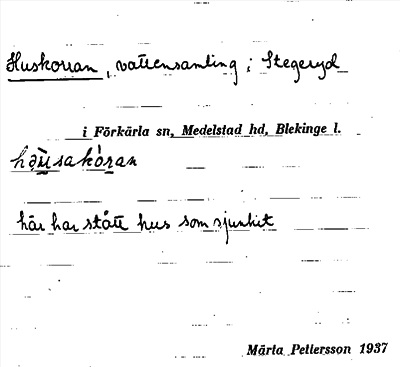 Huskorran, vattensamling i Stegeryd
i Förkärla sn, Medelstad hd, Blekinge l.
həu̲sakòr̲an
här har stått hus som sjunkit
Märta Pettersson 1937